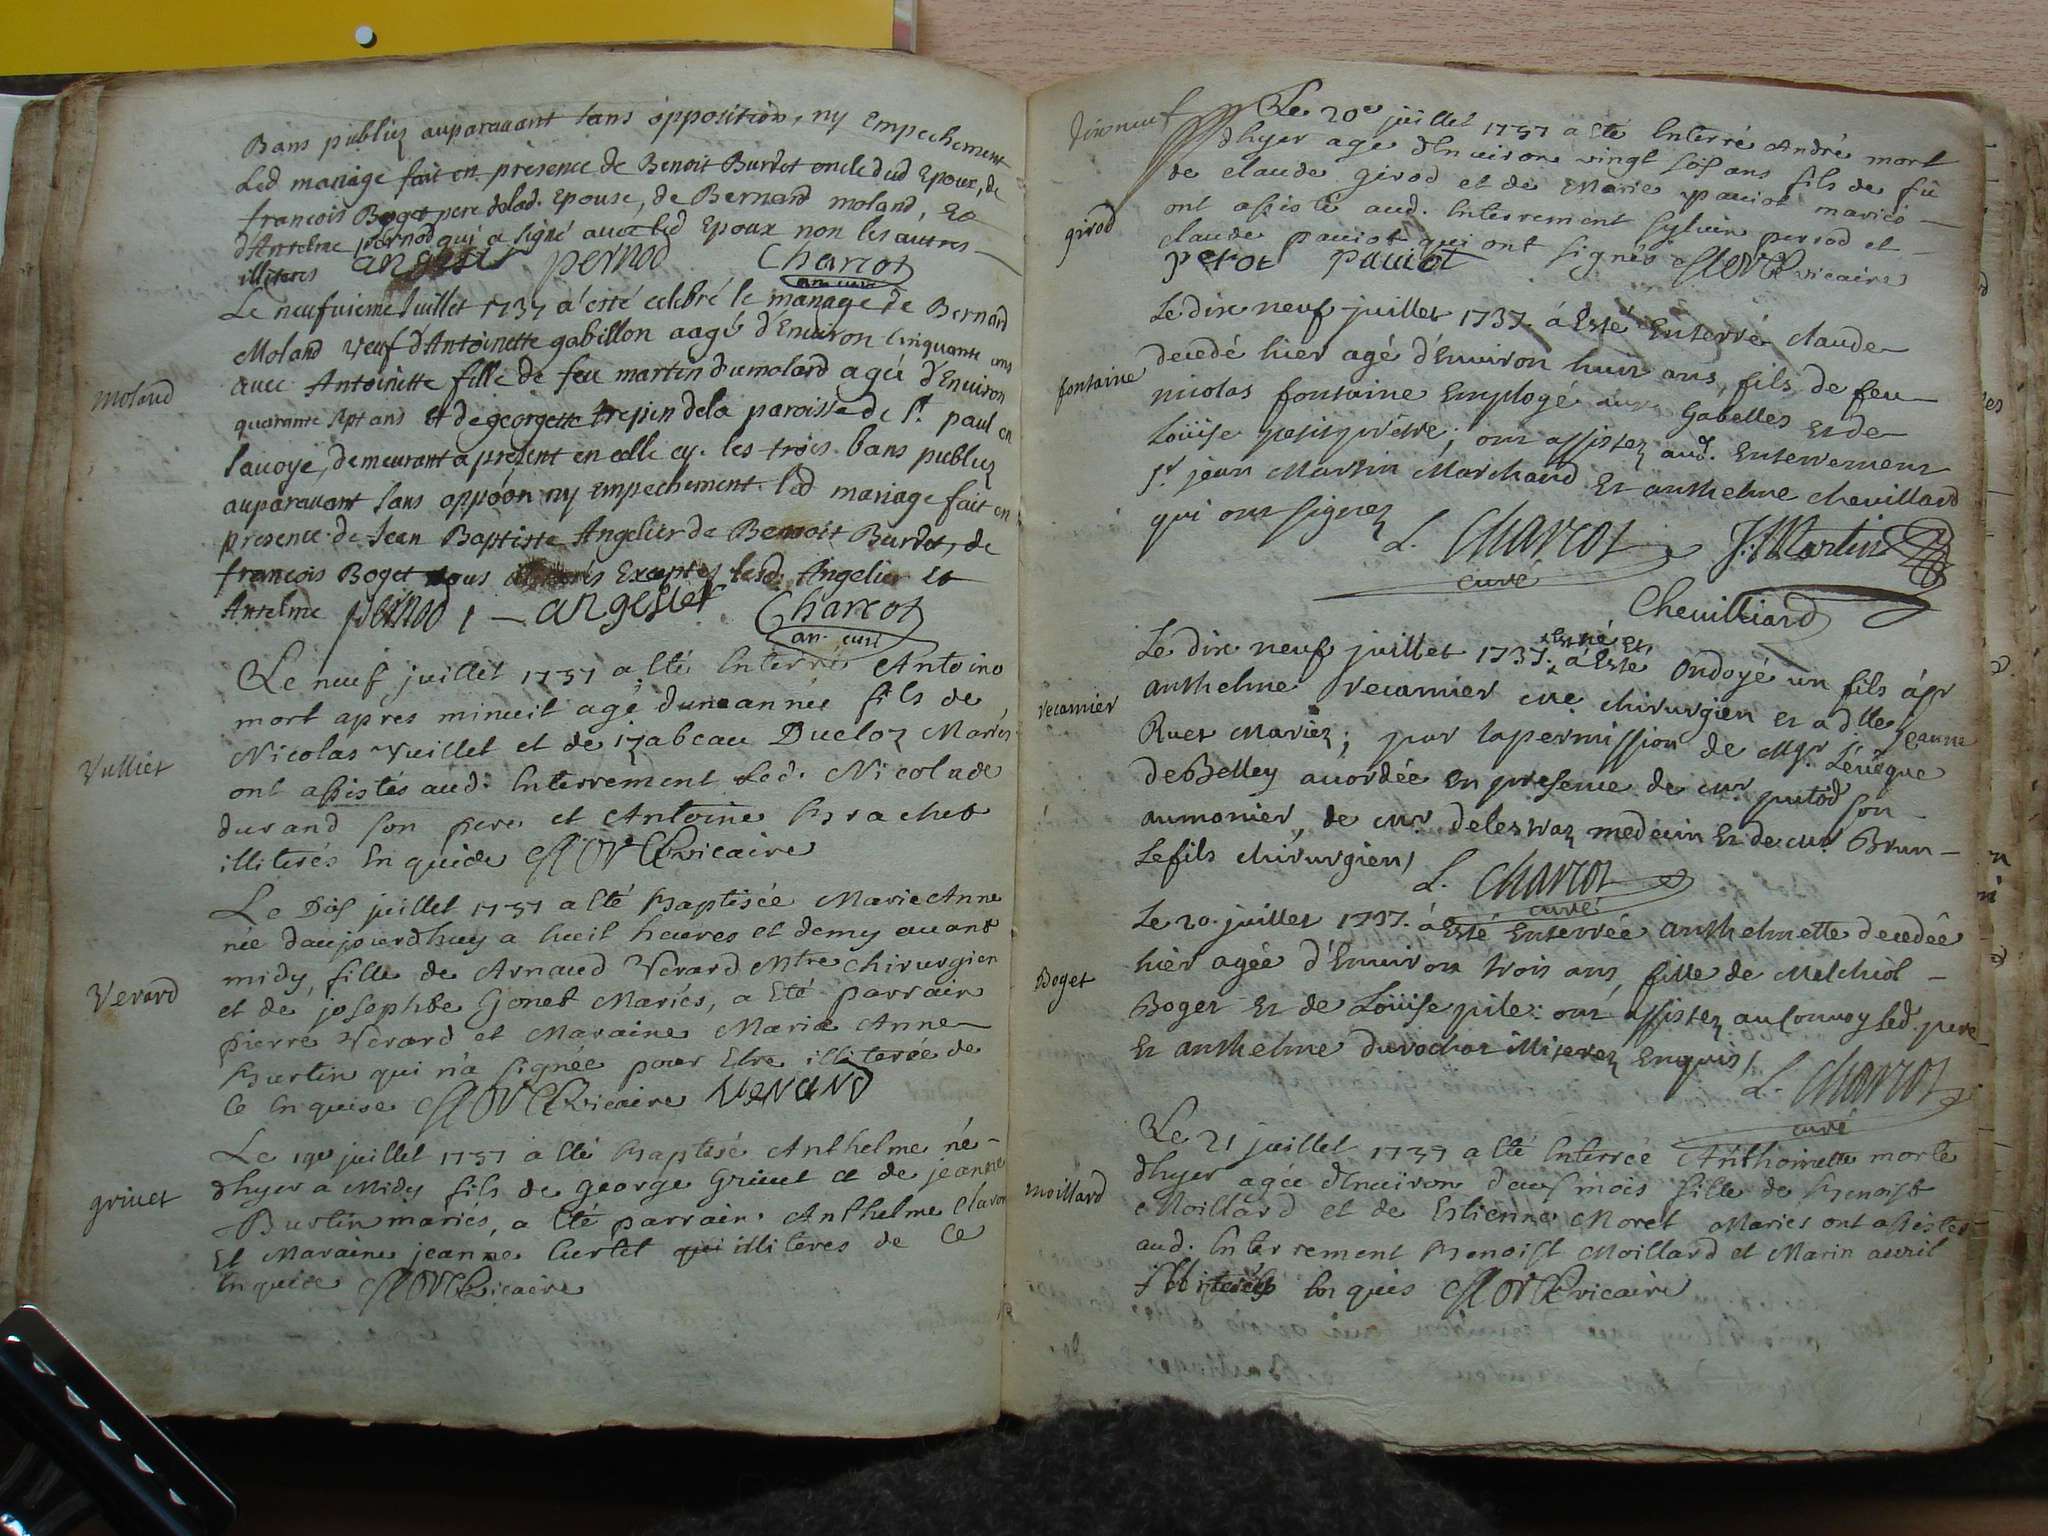 Bans publiez auparavant sans opposition, ny Empechement
Led mariage fait en présence de Benoit Burdet oncle dud Epoux, de
françois Boget pere delad. Epouse, de Bernard moland, Et
d'Antelme pernod qui a signé avec led Epoux non les autres
illiteres angelier pernod Charcot
an. curé
Le neufvieme Juillet 1737 a esté celebré le mariage de Bernard
Moland veuf d'Antoinette gabillon aagé d'Environ Cinquante ans
moland
avec Antoinette fille de feu martin dumolard agée d'Environ
quarante sept ans et de georgette trepier de la paroisse de St. paul en
Savoye, demeurant a present en celle cy. les trois bans publiez
auparavant sans oppoôn ny Empechement led mariage fait en
presence de Jean Baptiste Angelier de Benoit Burdet, de
françois Boget tous Exceptes lesd. Angelier Et
Antelme pernod angelier Charcot
an. curé
Le neuf juillet 1737 a eté Enterré Antoine
mort apres minuit agé dune année fils de
Vulliet
Nicolas Vuillet et de izabeau Ducloz Mariés
ont assistés aud. Enterrement Led. Nicolade
durand son pere et Antoine Brachet
illiterés Enquide vicaire
Le Dix juillet 1737 a eté Baptisée Marie Anne
née daujourdhuy a huit heures et demy avant
midy, fille de Arnaud Verard Mtre chirurgien
Verard
et de josephte Gonet Mariés, a Eté parrain
pierre Verard et Maraine Marie Anne
Burtin qui n'a signée pour Etre illiterée de
Ce Enquise vicaire Verard
Le 19e juillet 1737 a eté Baptisé Anthelme né
dhyer a Midy fils de george Grivet et de jeanne
grivet
Burtin mariés, a eté parrain Anthelme Claron
Et Maraine jeanne Curtet qui illiteres de Ce
Enquide vicaire
dixneuf
Le 20e juillet 1737 a eté Enterré André mort
dhyer agé dEnviron vingt six ans fils de fû
de claude girod et de Marie paviot mariés
girod
ont assisté aud. Enterrement Sylvin perrod et
claude paviot qui ont signés vicaire
perot paviot
Le dix neuf juillet 1737. à Esté Enterré claude
decedé hier agé d'Environ huit ans, fils de feu
fontaine
nicolas fontaine Employé aux Gabelles et de
Loüise petitprêtre; ont assistez aud. Enterrement
Sr. jean Martin Marchand Et anthelme chevillard
qui ont signez
L. Charcot J: Martin
curé
Chevilliard
Le dix neuf juillet 1737. Est né Et, à Esté Ondoyé un fils à Sr
anthelme recamier Me chirurgien Et a dlle jeanne
recamier
Ruet Mariez; par la permission de Mgr. L'évêque
de Belley accordée en presence de Mr putod son
aumonier, de Mr. delestraz medecin Et de Mr. Brun
Le fils chirurgien,
L. Charcot
curé
Le 20. juillet 1737. à Esté Enterrée anthelmette decedée
hier agée d'Environ trois ans, fille de Melchiol
Boget
Boget Et de Loüise pile: ont assistez au Convoy led. pere
Et anthelme durochat illiterez Enquis,
L. Charcot
curé
Le 21 juillet 1737 a eté Enterrée Anthoinette morte
dhyer agée dEnviron deux mois fille de Benoist
moillard
Moillard et de Estienne Moret Mariés ont assistés
aud. Enterrement Benoist Moillard et Marin avril
illiterés Enquis vicaire